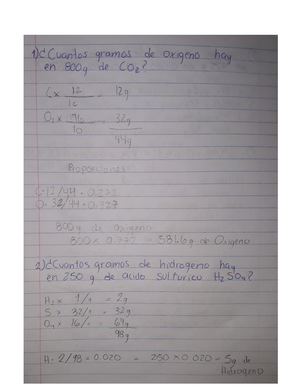 1)¿Cuantos gramos de oxigeno hay
en 800g de CO2?
12
12g
O2 x 16
32g
44g
Proporciones
C=12/44=0.272
O=32/44=0.727
800g de oxigeno
g de Oxigeno
2)¿Cuantos gramos de hidrogeno hay
en 250 g de acido sulfurico H2SO4?
H2 x 1/1 = 2g
S x 32/1 = 32g
O4 x 16/1 = 64g
98g
H=2/98=0.020 = 250x0.020=5g de
Hidrogeno